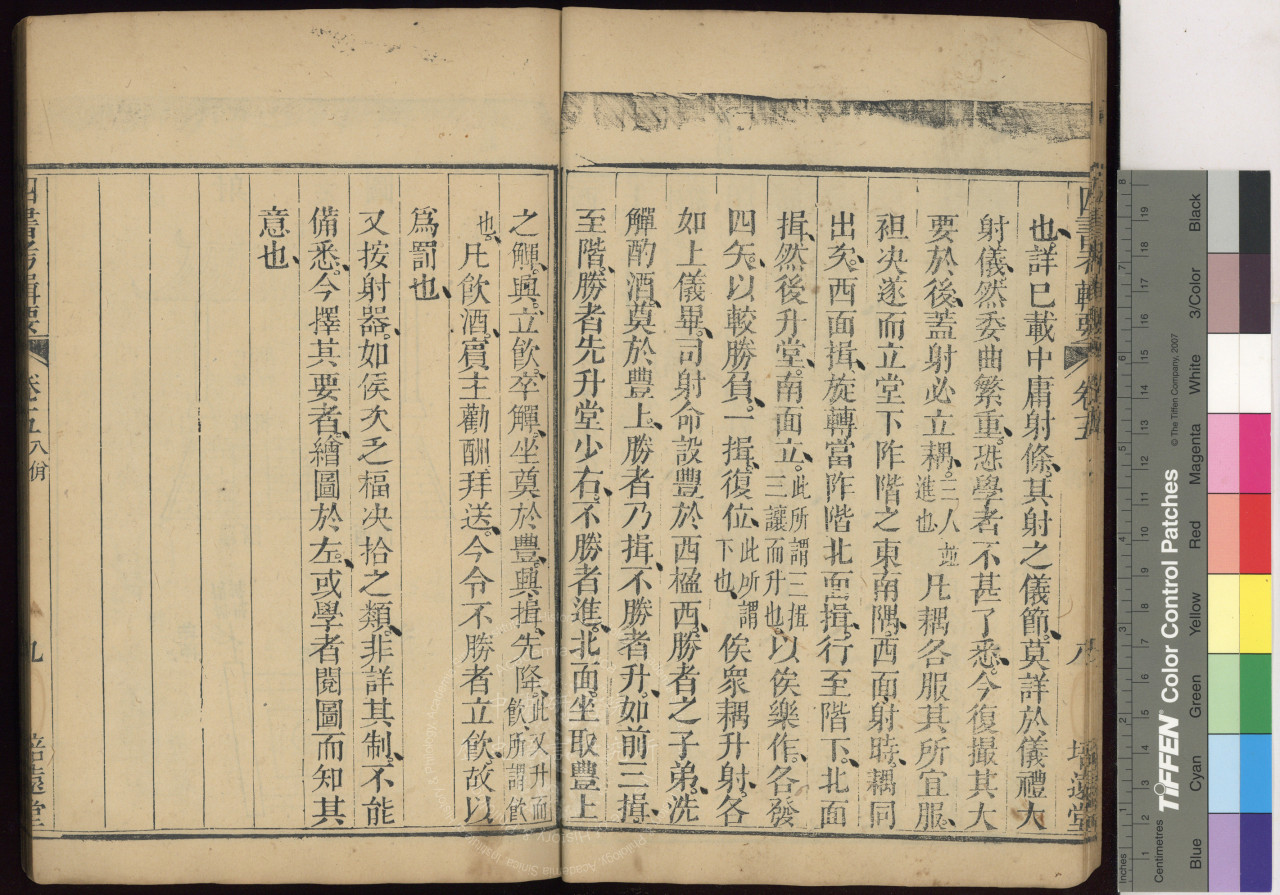 四書考輯要 卷五 八 培遠堂
也詳已載中庸射條其射之儀節莫詳於儀禮大
射儀然委曲繁重恐學者不甚了悉今復撮其大
要於後蓋射必立耦二人並進也凡耦各服其所宜服
袒决遂而立堂下阼階之東南隅西面射時耦同
出矣西面揖旋轉當阼階北面揖行至階下北面
揖然後升堂南面立此所謂三揖三讓而升也以俟樂作各發
四矢以較勝負一揖復位此所謂下也俟衆耦升射各
如上儀畢司射命設豐於西楹西勝者之子弟洗
觶酌酒奠於豐上勝者乃揖不勝者升如前三揖
至階勝者先升堂少右不勝者進北面坐取豐上
之觶興立飲卒觶坐奠於豐興揖先降此又升而飲所謂飲
也凡飲酒賓主勸酬拜送今令不勝者立飲故以
爲罰也
又按射器如侯次乏楅决拾之類非詳其制不能
備悉今擇其要者繪圖於左或學者閱圖而知其
意也
四書考輯要 卷五 八佾 九 培遠堂
TIFFEN® Color Control Patches
© The Tiffen Company, 2007
Inches
Centimetres
Blue
Cyan
Green
Yellow
Red
Magenta
White
3/Color
Black